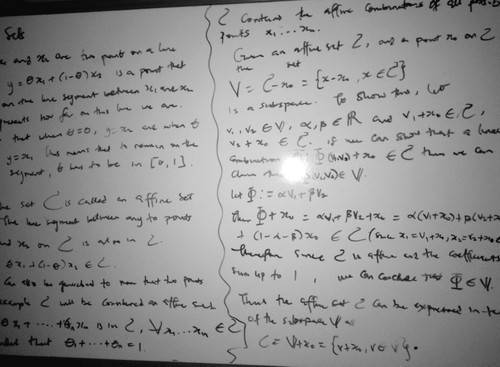 Sets
x1 and x2 are two points on a line
y = θx1 + (1-θ)x2 is a point that
on the line segment between x1 and x2
how far on this line we are.
that when θ=0, y=x2 and when θ
y=x1. this means that to remain on the
segment, θ has to be in [0,1].
set C is called an affine set
The line segment between any two points
and x2 on C is also in C.
θx1 + (1-θ)x2 ∈ C.
Can also be generalized to more than two points
example C will be considered an affine set
θ1x1 + ... + θnxn is in C, ∀ x1...xn ∈ C
that θ1 + ... + θn = 1.
C contains the affine combinations of all
points x1...xn.
Given an affine set C, and a point x0 on C
the set
V = C-x0 = {x-x0, x ∈ C}
is a subspace. To show this, let
v1, v2 ∈ V, α, β ∈ R and v1+x0 ∈ C,
v2+x0 ∈ C. if we can show that a linear
combination Φ + x0 ∈ C then we can
claim ∈ V.
let Φ := αv1+βv2
Then Φ + x0 = αv1+βv2+x0 = α(v1+x0)+β(v2+x0)
+ (1-α-β)x0 ∈ C (since x1=v1+x0, x2=v2+x0
Therefore since C is affine and the coefficients
sum up to 1, we can conclude that Φ ∈ V.
Thus the affine set C can be expressed in
of the subspace V as
C = V+x0 = {v+x0, v∈V}.